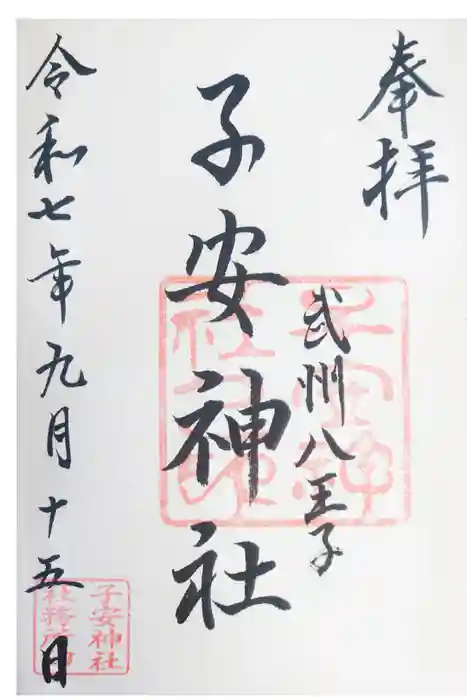 奉拝
武州八王子
子安神社
令和七年九月十五日
子安神社
社務所印
子安神
社之印